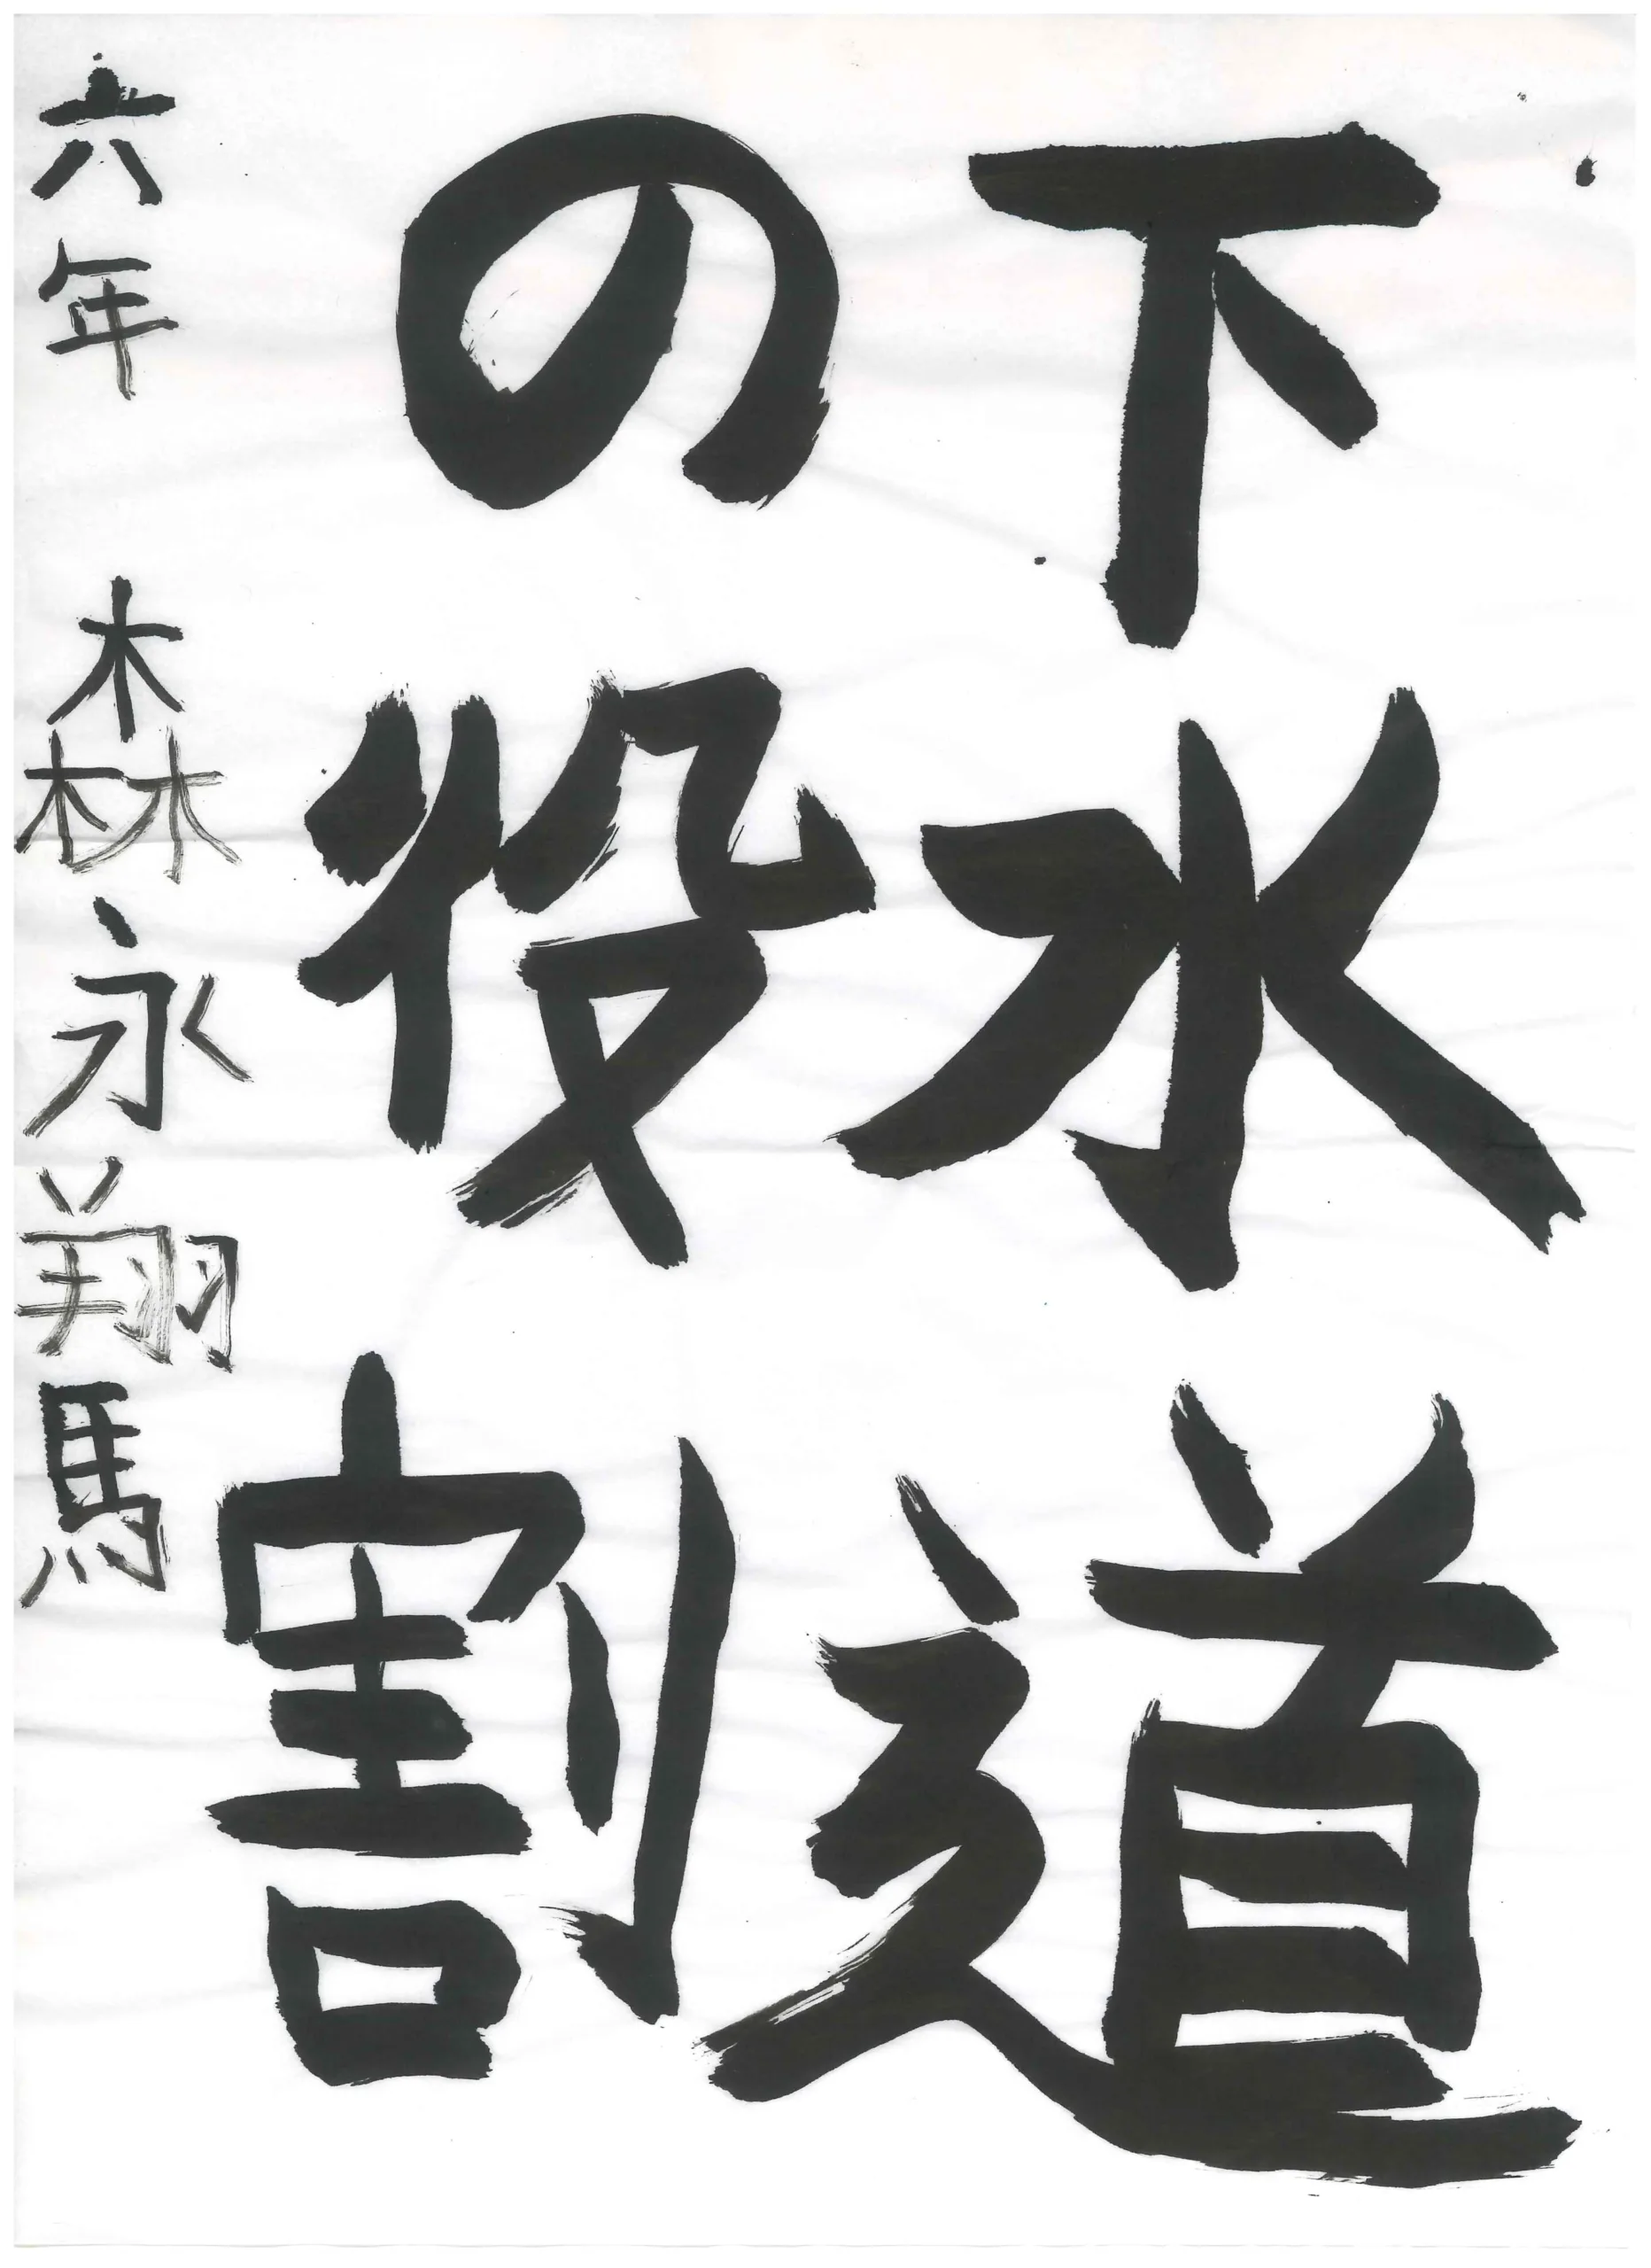 下水道
の役割
六年 森永翔馬